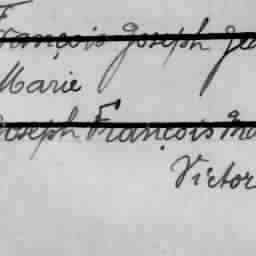 François Joseph
Marie
Joseph François
Victor